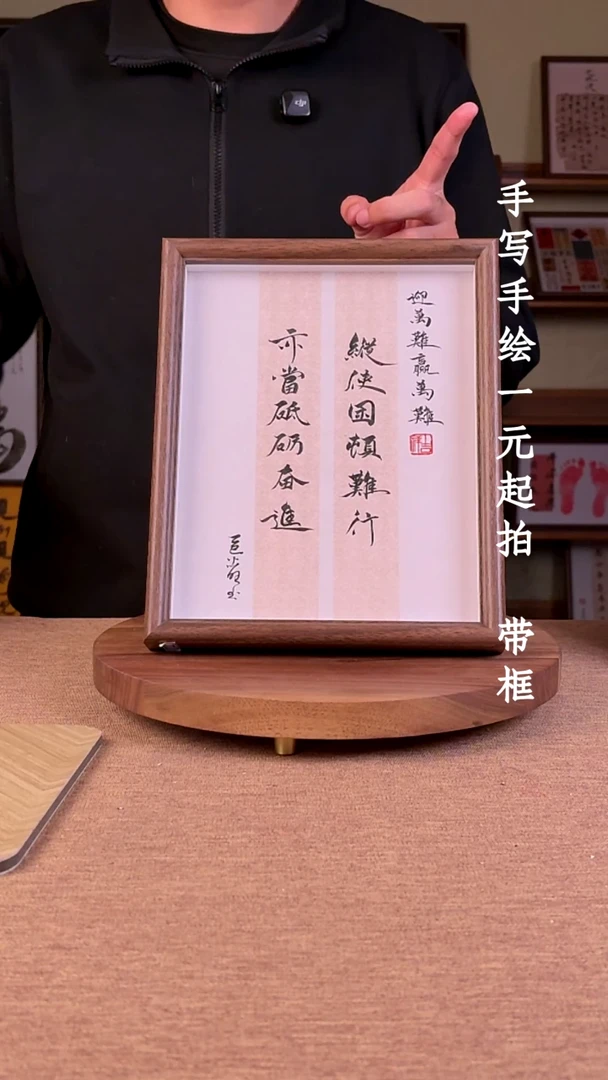 手写手绘一元起拍 带框
迎萬難贏萬難
縱使困頓難行
亦當砥砺奋進